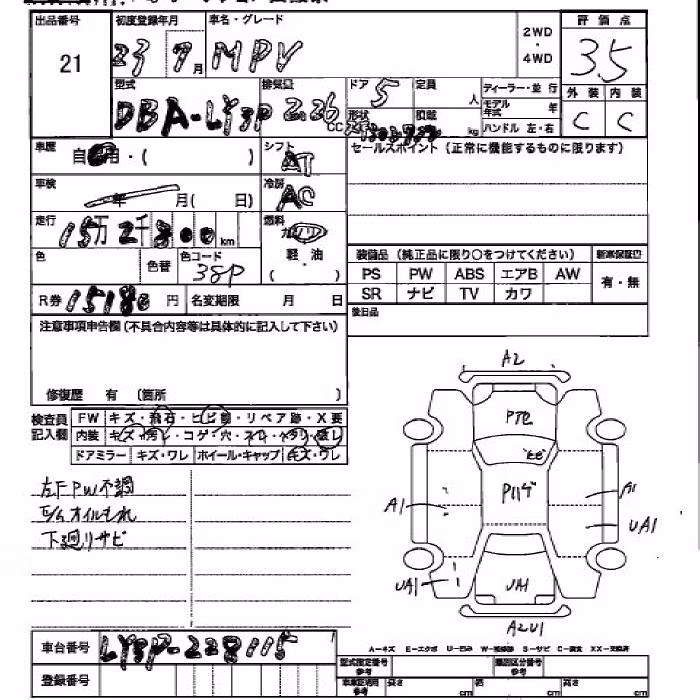 出品番号 初度登録年月 車名・グレード 2WD・4WD 評価点
21 23 7月 MPV 3.5
型式 排気量 ドア 定員 ディーラー・並行 外装 内装
DBA-LY3P 2.26 cc 5 人 モデル年式 年 C C
形状 積載 kg ハンドル 左・右
車歴 自家用・( ) シフト AT セールスポイント(正常に機能するものに限ります)
車検 年 月( 日) 冷房 AC
走行 15万2千300km 燃料 ガソリン
色 色替 色コード 38P 軽・油 ( ) 装備品(純正品に限り○をつけてください) 新車保証書
PS PW ABS エアB AW 有・無
SR ナビ TV カワ
R券 15180円 名変期限 月 日 後日品
注意事項申告欄(不具合内容等は具体的に記入して下さい)
修復歴 有 (箇所 )
検査員記入欄 FW キズ・飛石・ヒビ割・リペア跡・X要
内装 キズ・汚レ・コゲ・穴・
ドアミラー キズ・ワレ ホイール・キャップ キズ・ワレ
左F PW不調
オイルもれ
下廻りサビ
A2
P
A1
A1
UA1
UA1
UA1
A2U1
車台番号 LY3P-228115
登録番号
A-キズ E-エクボ U-凹み W-補修跡 S-サビ C-腐食 XX-交換済
型式指定番号 参考 類別区分番号 参考
車庫証明用 参考 長さ cm 幅 cm 高さ cm